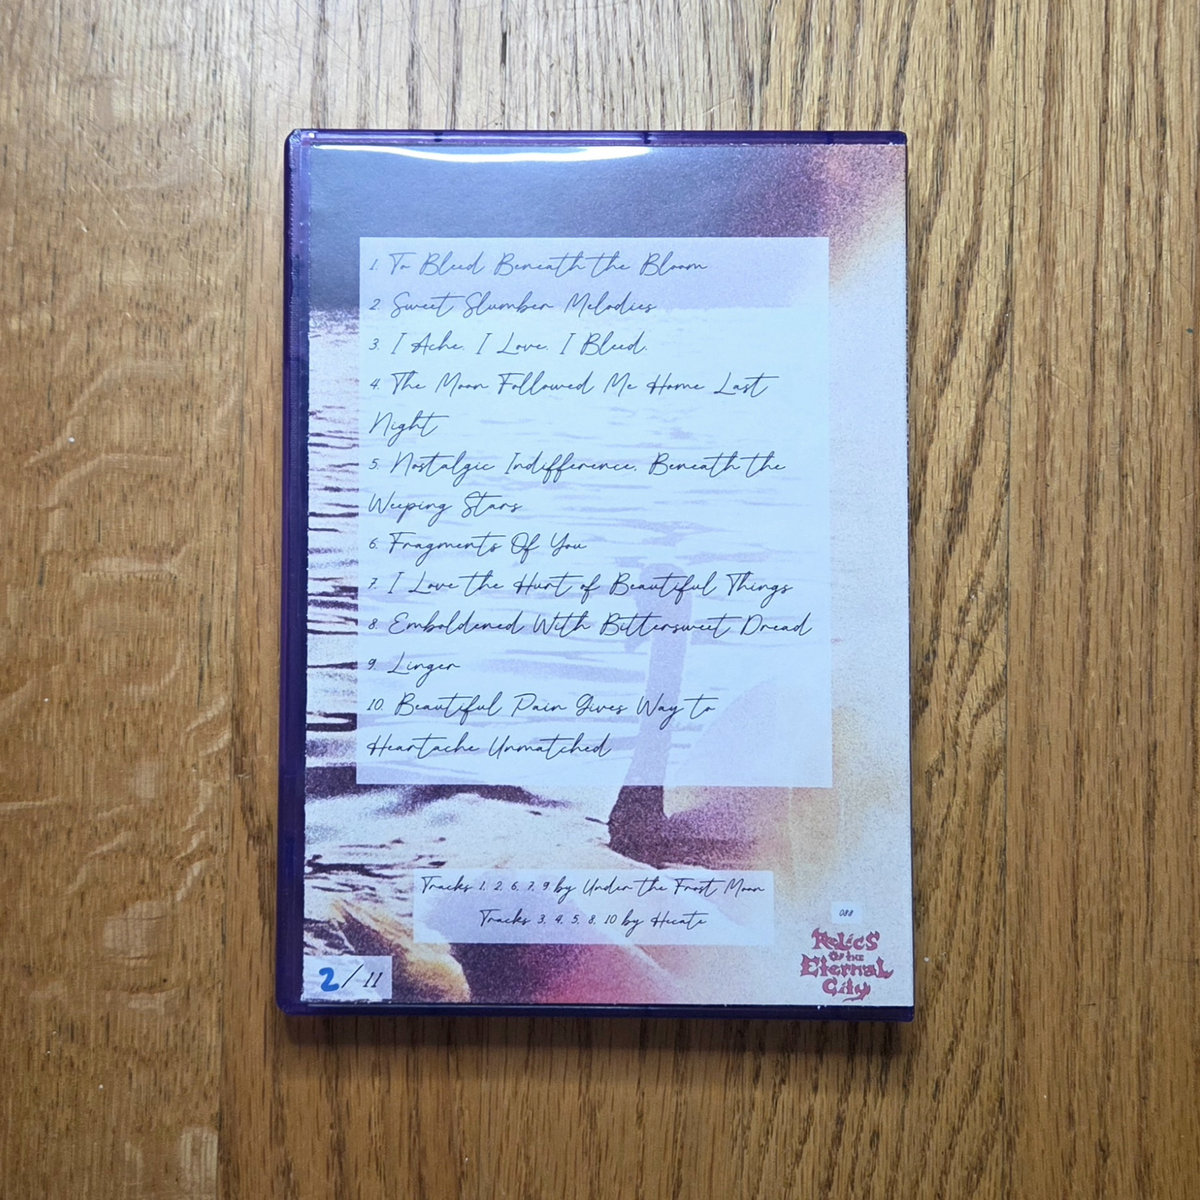 1. To Bleed Beneath the Bloom
2. Sweet Slumber Melodies
3. I Ache, I Love, I Bleed.
4. The Moon Followed Me Home Last
Night
5. Nostalgic Indifference, Beneath the
Weeping Stars
6. Fragments Of You
7. I Love the Hurt of Beautiful Things
8. Emboldened With Bittersweet Dread
9. Linger
10. Beautiful Pain Gives Way to
Heartache Unmatched
Tracks 1, 2, 6, 7, 9 by Under the Frost Moon
Tracks 3, 4, 5, 8, 10 by Hecate
088
Relics
Of the
Eternal
City
2/11